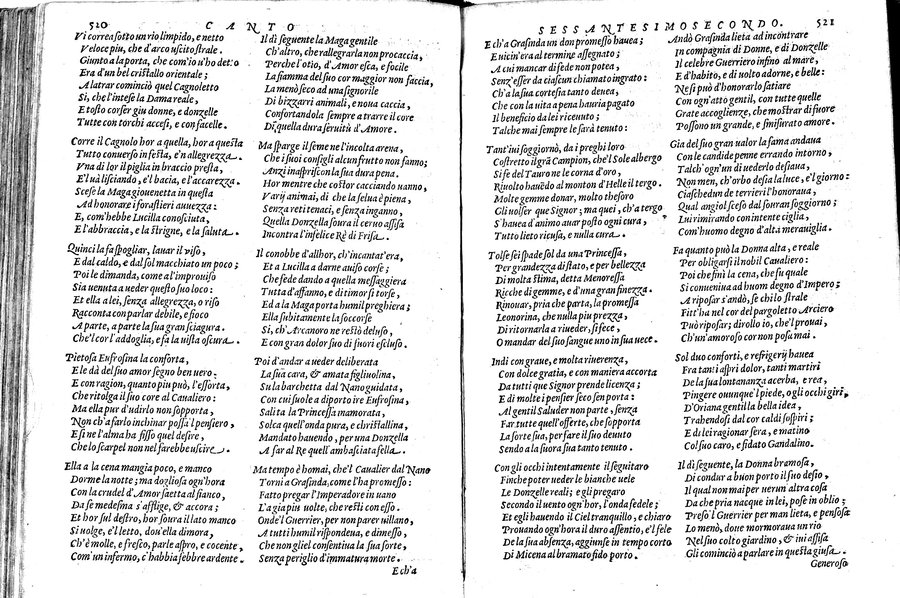 520 CANTO
Vi correa sotto un rio limpido, e netto
Veloce piu, che d'arco uscito strale.
Giunto a la porta, che com'io u'ho detto
Era d'un bel cristallo orientale;
A latrar cominciò quel Cagnoletto
Sì, che l'intese la Dama reale,
E tosto corser giu donne, e donzelle
Tutte con torchi accesi, e con facelle.
Corre il Cagnolo hor a quella, hor a questa
Tutto conuerso in festa, e'n allegrezza.
Vna di lor il piglia in braccio presta,
E'l uà lisciando, e'l bacia, e l'accarezza.
Scese la Maga giouenetta in questa
Ad honorare i forastieri auuezza:
E, com'hebbe Lucilla conosciuta,
E l'abbraccia, e la strigne, e la saluta.
Quinci la fa spogliar, lauar il viso,
E dal caldo, e dal sol macchiato un poco;
Poi le dimanda, come al'improuiso
Sia uenuta a ueder questo suo loco:
Et ella a lei, senza allegrezza, o riso
Racconta con parlar debile, e fioco
A parte, a parte la sua gran sciagura.
Che'l cor l'addoglia, e fà la uista oscura.
Pietosa Eufrosina la conforta,
E le dà del suo amor segno ben uero:
E con ragion, quanto piu può, l'essorta,
Che ritolga il suo core al Caualiero:
Ma ella pur d'udirlo non sopporta,
Non ch'a farlo inchinar possa'l pensiero,
E si ne l'alma ha fisso quel desire,
Che lo scarpel non nel farebbe uscire.
Ella a la cena mangia poco, e manco
Dorme la notte; ma dogliosa ogn'hora
Con la crudel d'Amor saetta al fianco,
Da se medesma s'afflige, & accora;
Et hor sul destro, hor sour a lato manco
Si uolge, e'l letto, dou'ella dimora,
Ch'è molle, e fresco, parle aspro, e cocente,
Com'un infermo, c'habbia febbre ardente.
Il dì seguente la Maga gentile
Ch'altro, che rallegrarla non procaccia,
Perche l'otio, d'Amor esca, e focile
La fiamma del suo cor maggior non faccia,
La menò seco ad una signorile
Di bizzarri animali, e noua caccia,
Confortandola sempre a trarre il core
Di quella dura seruitù d'Amore.
Ma sparge il seme ne l'incolta arena,
Che i suoi consigli alcun frutto non fanno;
Anzi inasprisce on la sua dura pena.
Hor mentre che costor cacciando uanno,
Varÿ animai, di che la selua è piena,
Senza reti tenaci, e senza inganno,
Quella Donzella fuora il ceruo assisa
Incontra l'infelice Rè di Frisa.
Il conobbe d'allhor, ch'incantat'era,
Et a Lucilla a darne auiso corse;
Che fede dando a quella messaggiera
Tutta d'affanno, e di timor si torse,
Ed a la Maga porta humil preghiera;
Ella subitamente la soccorse
Sì, ch'Arcanoro ne restò deluso,
E con gran dolor suo di fuori escluso.
Poi d'andar a ueder deliberata
La sua cara, & amata figliuolina,
Su la barchetta dal Nano guidata,
Con cui suole a diporto ire Eufrosina,
Salita la Princessa innamorata,
Solca quell'onda pura, e christallina,
Mandato hauendo, per una Donzella
A far al Re quell'ambasciata fella.
Ma tempo è homai, che'l Caualier dal Nano
Torni a Grasinda, come l'ha promesso:
Fatto pregar l'Imperadore in uano
L'a gia piu uolte, che resti con esso.
Onde'l Guerrier, per non parer uillano,
A tutti humil rispondeua, e dimesso,
Che non gliel consentiua la sua sorte,
Senza periglio d'immatura morte.
Ech'a
SESSANTESIMOSECONDO. 521
Ech'a Grasinda un don promesso hauea;
E uicin'era al termine assegnato;
A cui mancar di fede non potea,
Senz'esser da ciascun chiamato ingrato:
Ch'a la sua cortesia tanto deuea,
Che con la uita a pena hauria pagato
Il beneficio da lei riceuuto;
Talche mai sempre le sarà tenuto:
Tant'iui soggiornò, da i preghi loro
Costretto il grã Campion, che'l Sole albergo
Si fe del Tauro ne le corna d'oro,
Riuolto hauẽdo al monton d'Helle il tergo.
Molte gemme donar, molto thesoro
Gli uolser que Signor; ma quei, ch'a tergo
S'hauea d'animo auar posto ogni cura,
Tutto lieto ricusa, e nulla cura.
Tolse sei spade sol da una Princessa,
Per grandezza di stato, e per bellezza
Di molta stima, detta Menoressa
Ricche di gemme, e d'una gran finezza.
Rinouar, pria che parta, la promessa
Leonorina, che nulla piu prezza,
Di ritornarla a riueder, si fece,
O mandar del suo sangue uno in sua uece.
Indi con graue, e molta riuerenza,
Con dolce gratia, e con maniera accorta
Da tutti que Signor prende licenza;
E di molte i pensier seco sen porta:
Al gentil Saluder non parte, senza
Far tutte quell'offerte, che sopporta
La sorte sua, per fare il suo deuuto
Sendo a la suora sua tanto tenuto.
Con gli occhi intentamente il seguitaro
Finche poter ueder le bianche uele
Le Donzelle reali; e gli pregaro
Secondo il uento ogn'hor, l'onda fedele;
Et egli hauendo il Ciel tranquillo, e chiaro
Prouando ogn'hora il duro assentio, e'l fele
De la sua absenza, aggiunse in tempo corto
Di Micena al bramato fido porto.
Andò Grasinda lieta ad incontrare
In compagnia di Donne, e di Donzelle
Il celebre Guerriero infino al mare,
E d'habito, e di uolto adorne, e belle:
Ne si può d'honorarlo satiare
Con ogn'atto gentil, con tutte quelle
Grate accoglienze, che mostrar di fuore
Possono un grande, e smisurato amore.
Gia del suo gran ualor la fama andaua
Con le candide penne errando intorno,
Talch'ogn'un di uederlo desiaua,
Non men, ch'orbo desia la luce, e'l giorno:
Ciaschedun de terrieri l'honoraua,
Qual angiol sceso dal souran soggiorno;
Lui rimirando con intente ciglia,
Com'huomo degno d'alta merauiglia.
Fa quanto può la Donna alta, e reale
Per obligarsi il nobil Caualiero:
Poi che finì la cena, che fu quale
Si conueniua ad huom degno d'Impero;
A riposar s'andò, se chi lo strale
Fitt'ha nel cor del pargoletto Arciero
Può riposar; dirollo io, che'l prouai,
Ch'un'amoroso cor non posa mai.
Sol duo conforti, e refrigerij hauea
Fra tanti aspri dolor, tanti martiri
De la sua lontananza acerba, e rea,
Pingere ouunque'l piede, ogli occhi giri,
D'Oriana gentil la bella idea,
Trahendosi dal cor caldi sospiri;
E di lei ragionar sera, e matino
Col suo caro, e fidato Gandalino.
Il dì seguente, la Donna bramosa,
Di condur a buon porto il suo desio,
Il qual non mai per uerun'altra cosa
Da che pria nacque in lei, pose in oblio;
Preso'l Guerrier per man lieta, e pensosa
Lo menò, doue mormoraua un rio
Nel suo colto giardino, & iui assisa
Gli cominciò a parlare in questa guisa.
Generoso